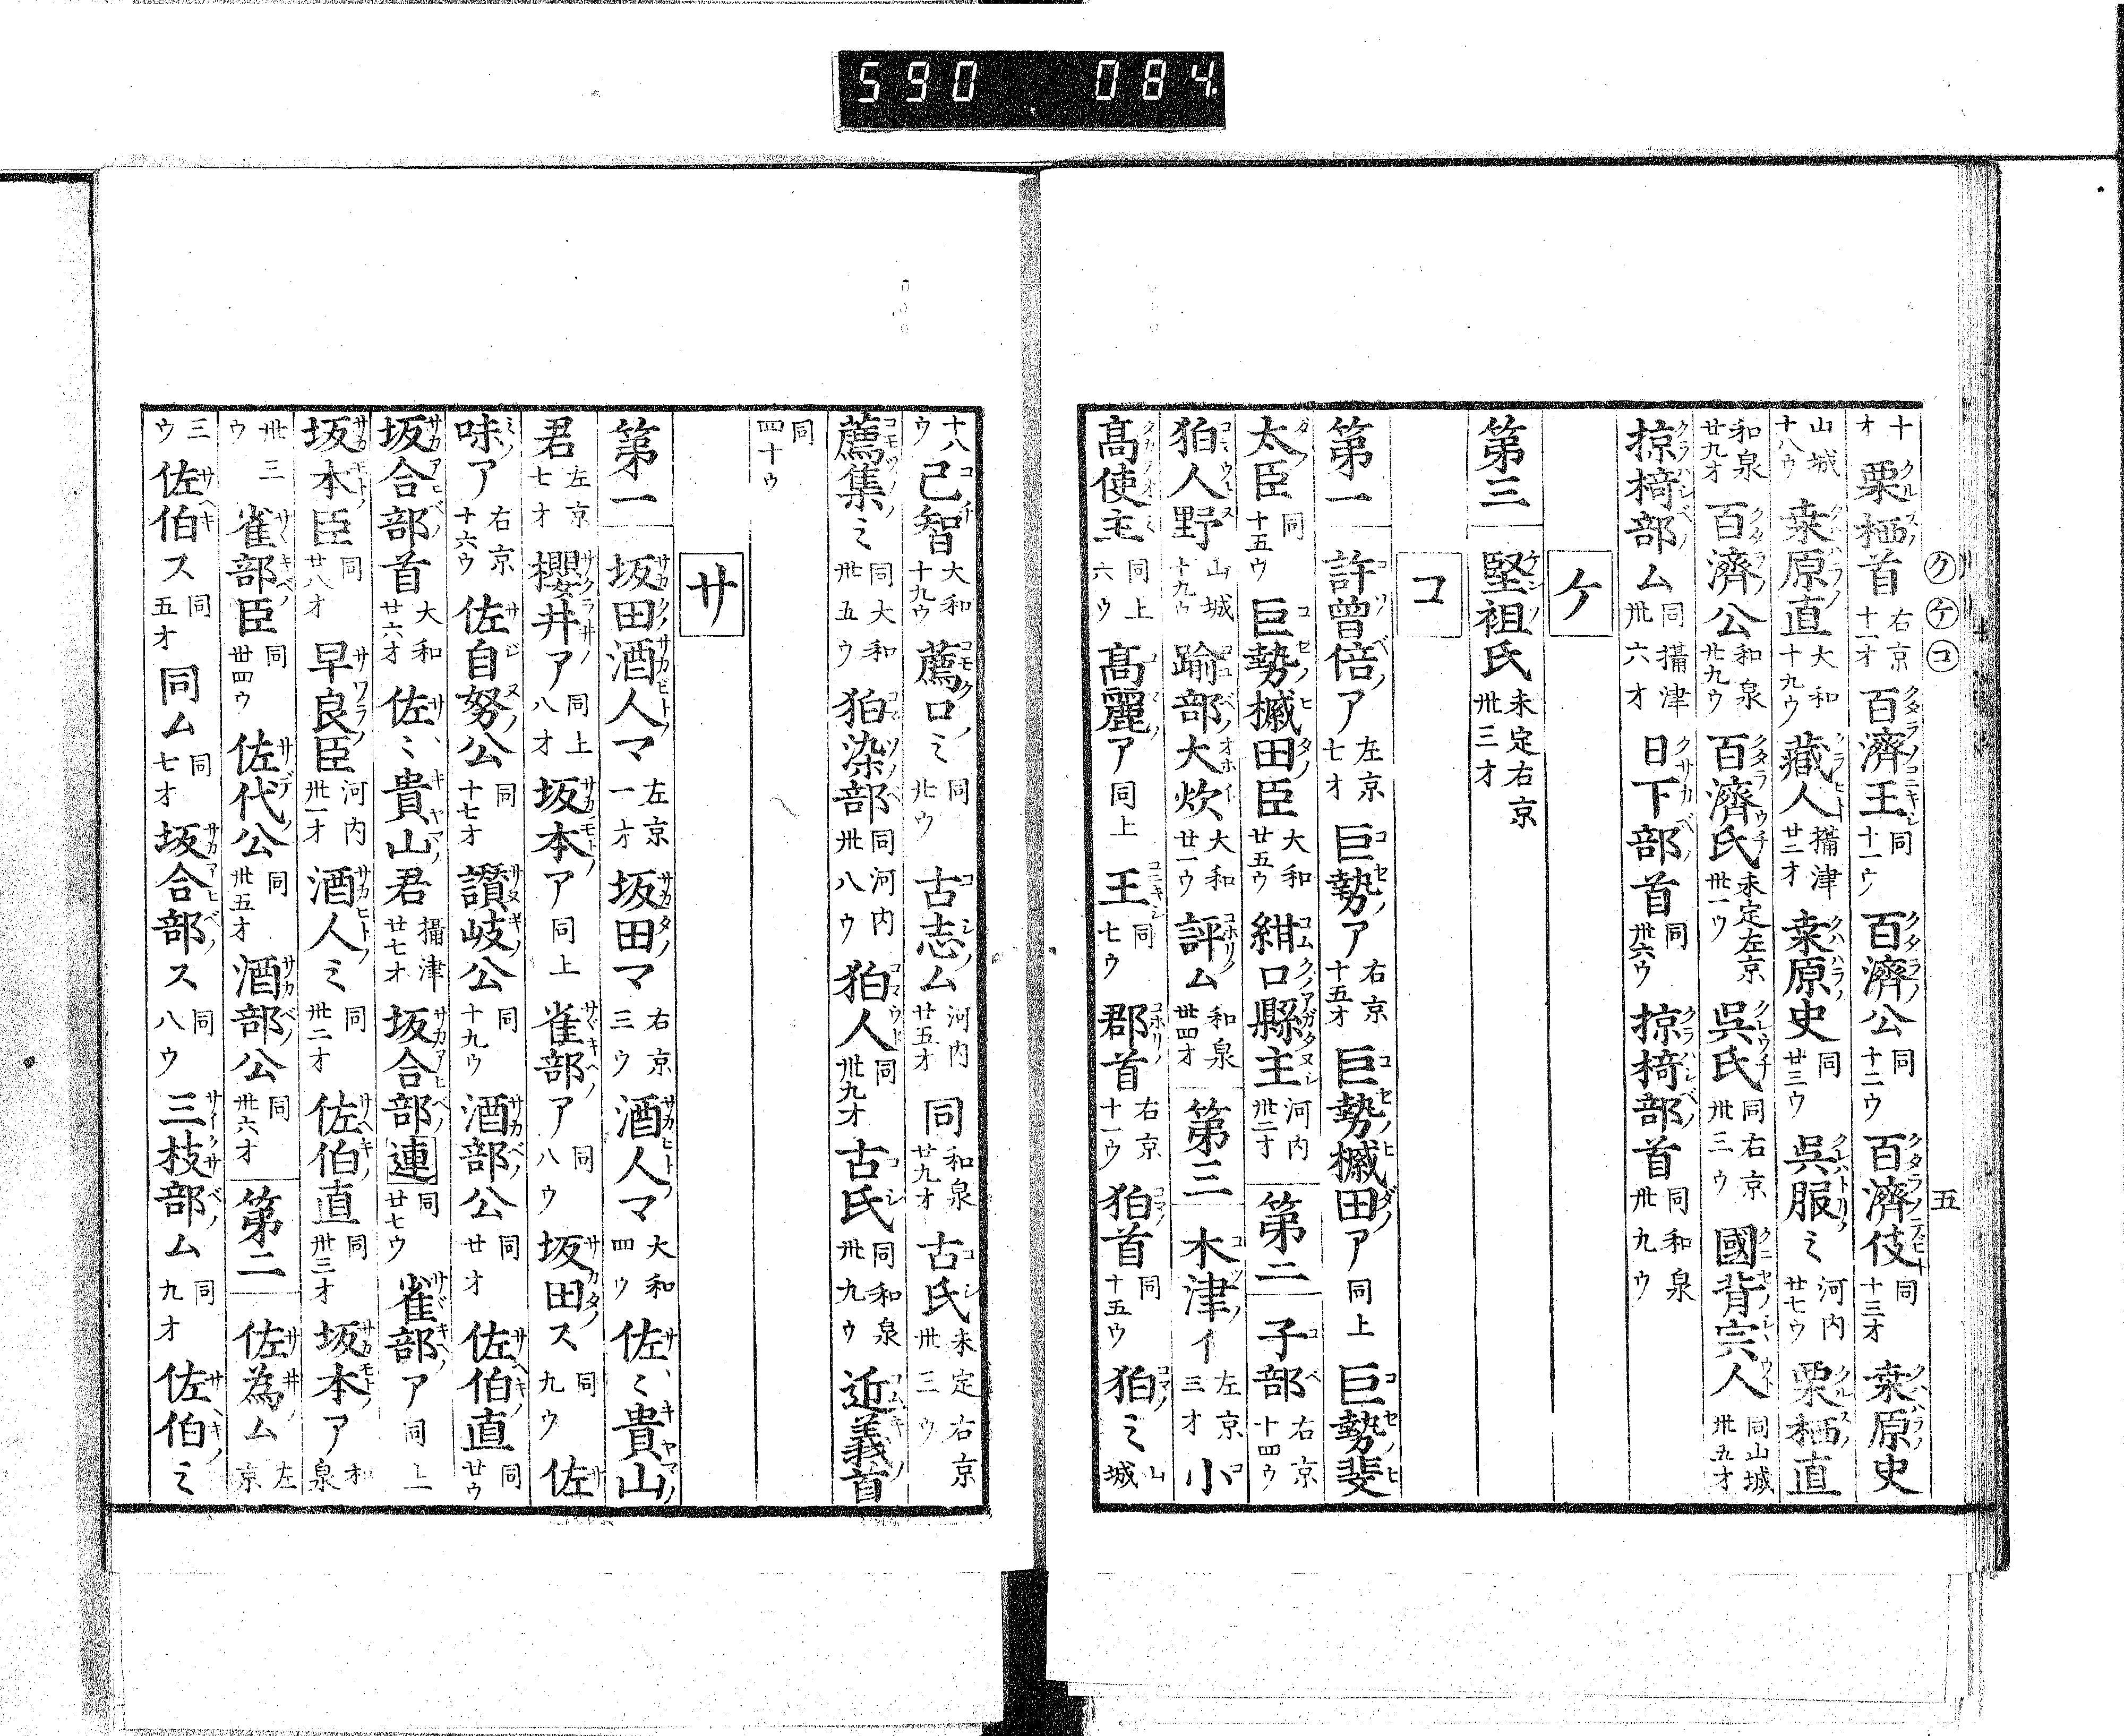 590 084
㋗㋘㋙ 五
十オ 栗栖首 右京十一オ 百濟王 同十一ウ 百濟公 同十二ウ 百濟伎 同十三オ 桒原史
山城十八ウ 桒原直 大和十九ウ 藏人 攝津廿二オ 桒原史 同廿三ウ 呉服ミ 河内廿七ウ 栗栖直
和泉廿九オ 百濟公 和泉廿九ウ 百濟氏 未定左京卅一ウ 呉氏 同右京卅三ウ 國背宍人 同山城卅五オ
掠椅部ム 同攝津卅六オ 日下部首 同卅六ウ 掠椅部首 同和泉卅九ウ
ケ
第三 堅祖氏 未定右京卅三オ
コ
第一 許曽倍ア 左京七オ 巨勢ア 右京十五オ 巨勢槭田ア 同上 巨勢斐
太臣 同十五ウ 巨勢槭田臣 大和廿五ウ 紺口縣主 河内卅二オ 第二 子部 右京十四ウ
狛人野 山城十九ウ 踰部大炊 大和廿一ウ 評ム 和泉卌四オ 第三 木津イ 左京三オ 小
髙使主 同上六ウ 髙麗ア 同上 王 同七ウ 郡首 右京十一ウ 狛首 同十五ウ 狛ミ 山城
十八ウ 己智 大和十九ウ 薦口ミ 同廿ウ 古志ム 河内廿五オ 同 和泉廿九オ 古氏 未定右京卅三ウ
薦集ミ 同大和卅五ウ 狛染部 同河内卅八ウ 狛人 同卅九オ 古氏 同和泉卅九ウ 近義首
同四十ウ
サ
第一 坂田酒人マ 左京一オ 坂田マ 右京三ウ 酒人マ 大和四ウ 佐ミ貴山
君 左京七オ 櫻井ア 同上八オ 坂本ア 同上 雀部ア 同八ウ 坂田ス 同九ウ 佐
味ア 右京十六ウ 佐自努公 同十七オ 讃岐公 同十九ウ 酒部公 同廿オ 佐伯直 同廿ウ
坂合部首 大和廿六オ 佐ミ貴山君 攝津廿七オ 坂合部連 同廿七ウ 雀部ア 同上
坂本臣 同廿八オ 早良臣 河内卅一オ 酒人ミ 同卅二オ 佐伯直 同卅三オ 坂本ア 和泉
卅三ウ 雀部臣 同卌四ウ 佐代公 同卅五オ 酒部公 同卅六オ 第二 佐為ム 左京
三ウ 佐伯ス 同五オ 同ム 同七オ 坂合部ス 同八ウ 三枝部ム 同九オ 佐伯ミ